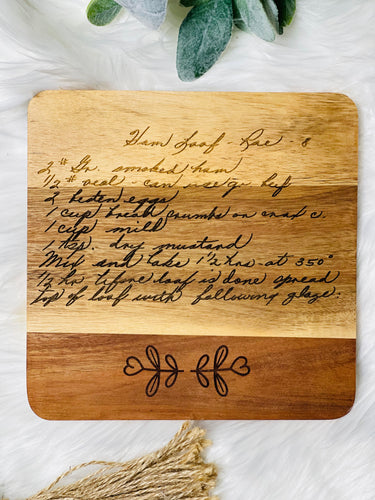 Ham Loaf - Rae - 8
2 # Gr. smoked ham
1/2 # veal - can use gr beef
2 beaten eggs
1 cup bread crumbs or crax c.
1 cup milk
1 tsp. dry mustard
Mix and bake 1 1/2 hrs at 350°
1/2 hr before loaf is done spread
top of loaf with following glaze: